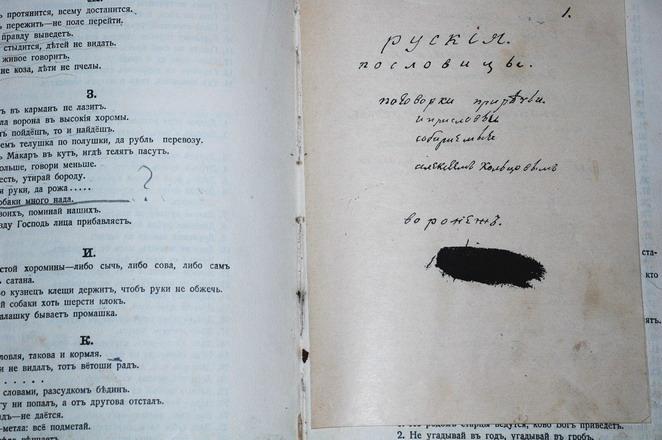 протянится, всему достанится.
пережить—не поле перейти.
правду выведетъ.
стыдится, дѣтей не видать.
живое говоритъ,
не коза, дѣти не пчелы.
З.
въ карманъ не лазитъ.
ворона въ высокія хоромы.
пойдёшъ, то и найдёшъ.
телушка по полушки, да рубль перевозу.
Макаръ въ кутъ, игдѣ телятъ пасутъ.
говори меньше.
утирай бороду.
руки, да рожа .....
много нада.
поминай нашихъ.
Господь лица прибавляетъ.
?
И.
хоромины—либо сычь, либо сова, либо самъ
сатана.
кузнецъ клещи держитъ, чтобъ руки не обжечь.
собаки хоть шерсти клокъ.
бываетъ промашка.
К.
такова и кормля.
не видалъ, тотъ вѣтоши радъ.
. . . . . .
словами, разсудкомъ бѣдинъ.
ни попалъ, а отъ другова отсталъ.
не даётся.
метла: всё подметай.
1.
РУСКІЯ.
пословицы.
поговорки приречьи
и присловьи
собираемыя
алексѣемъ Кольцовымъ
воронежъ.
кто
2. Не угадывай въ годъ, угадывай въ гробъ.